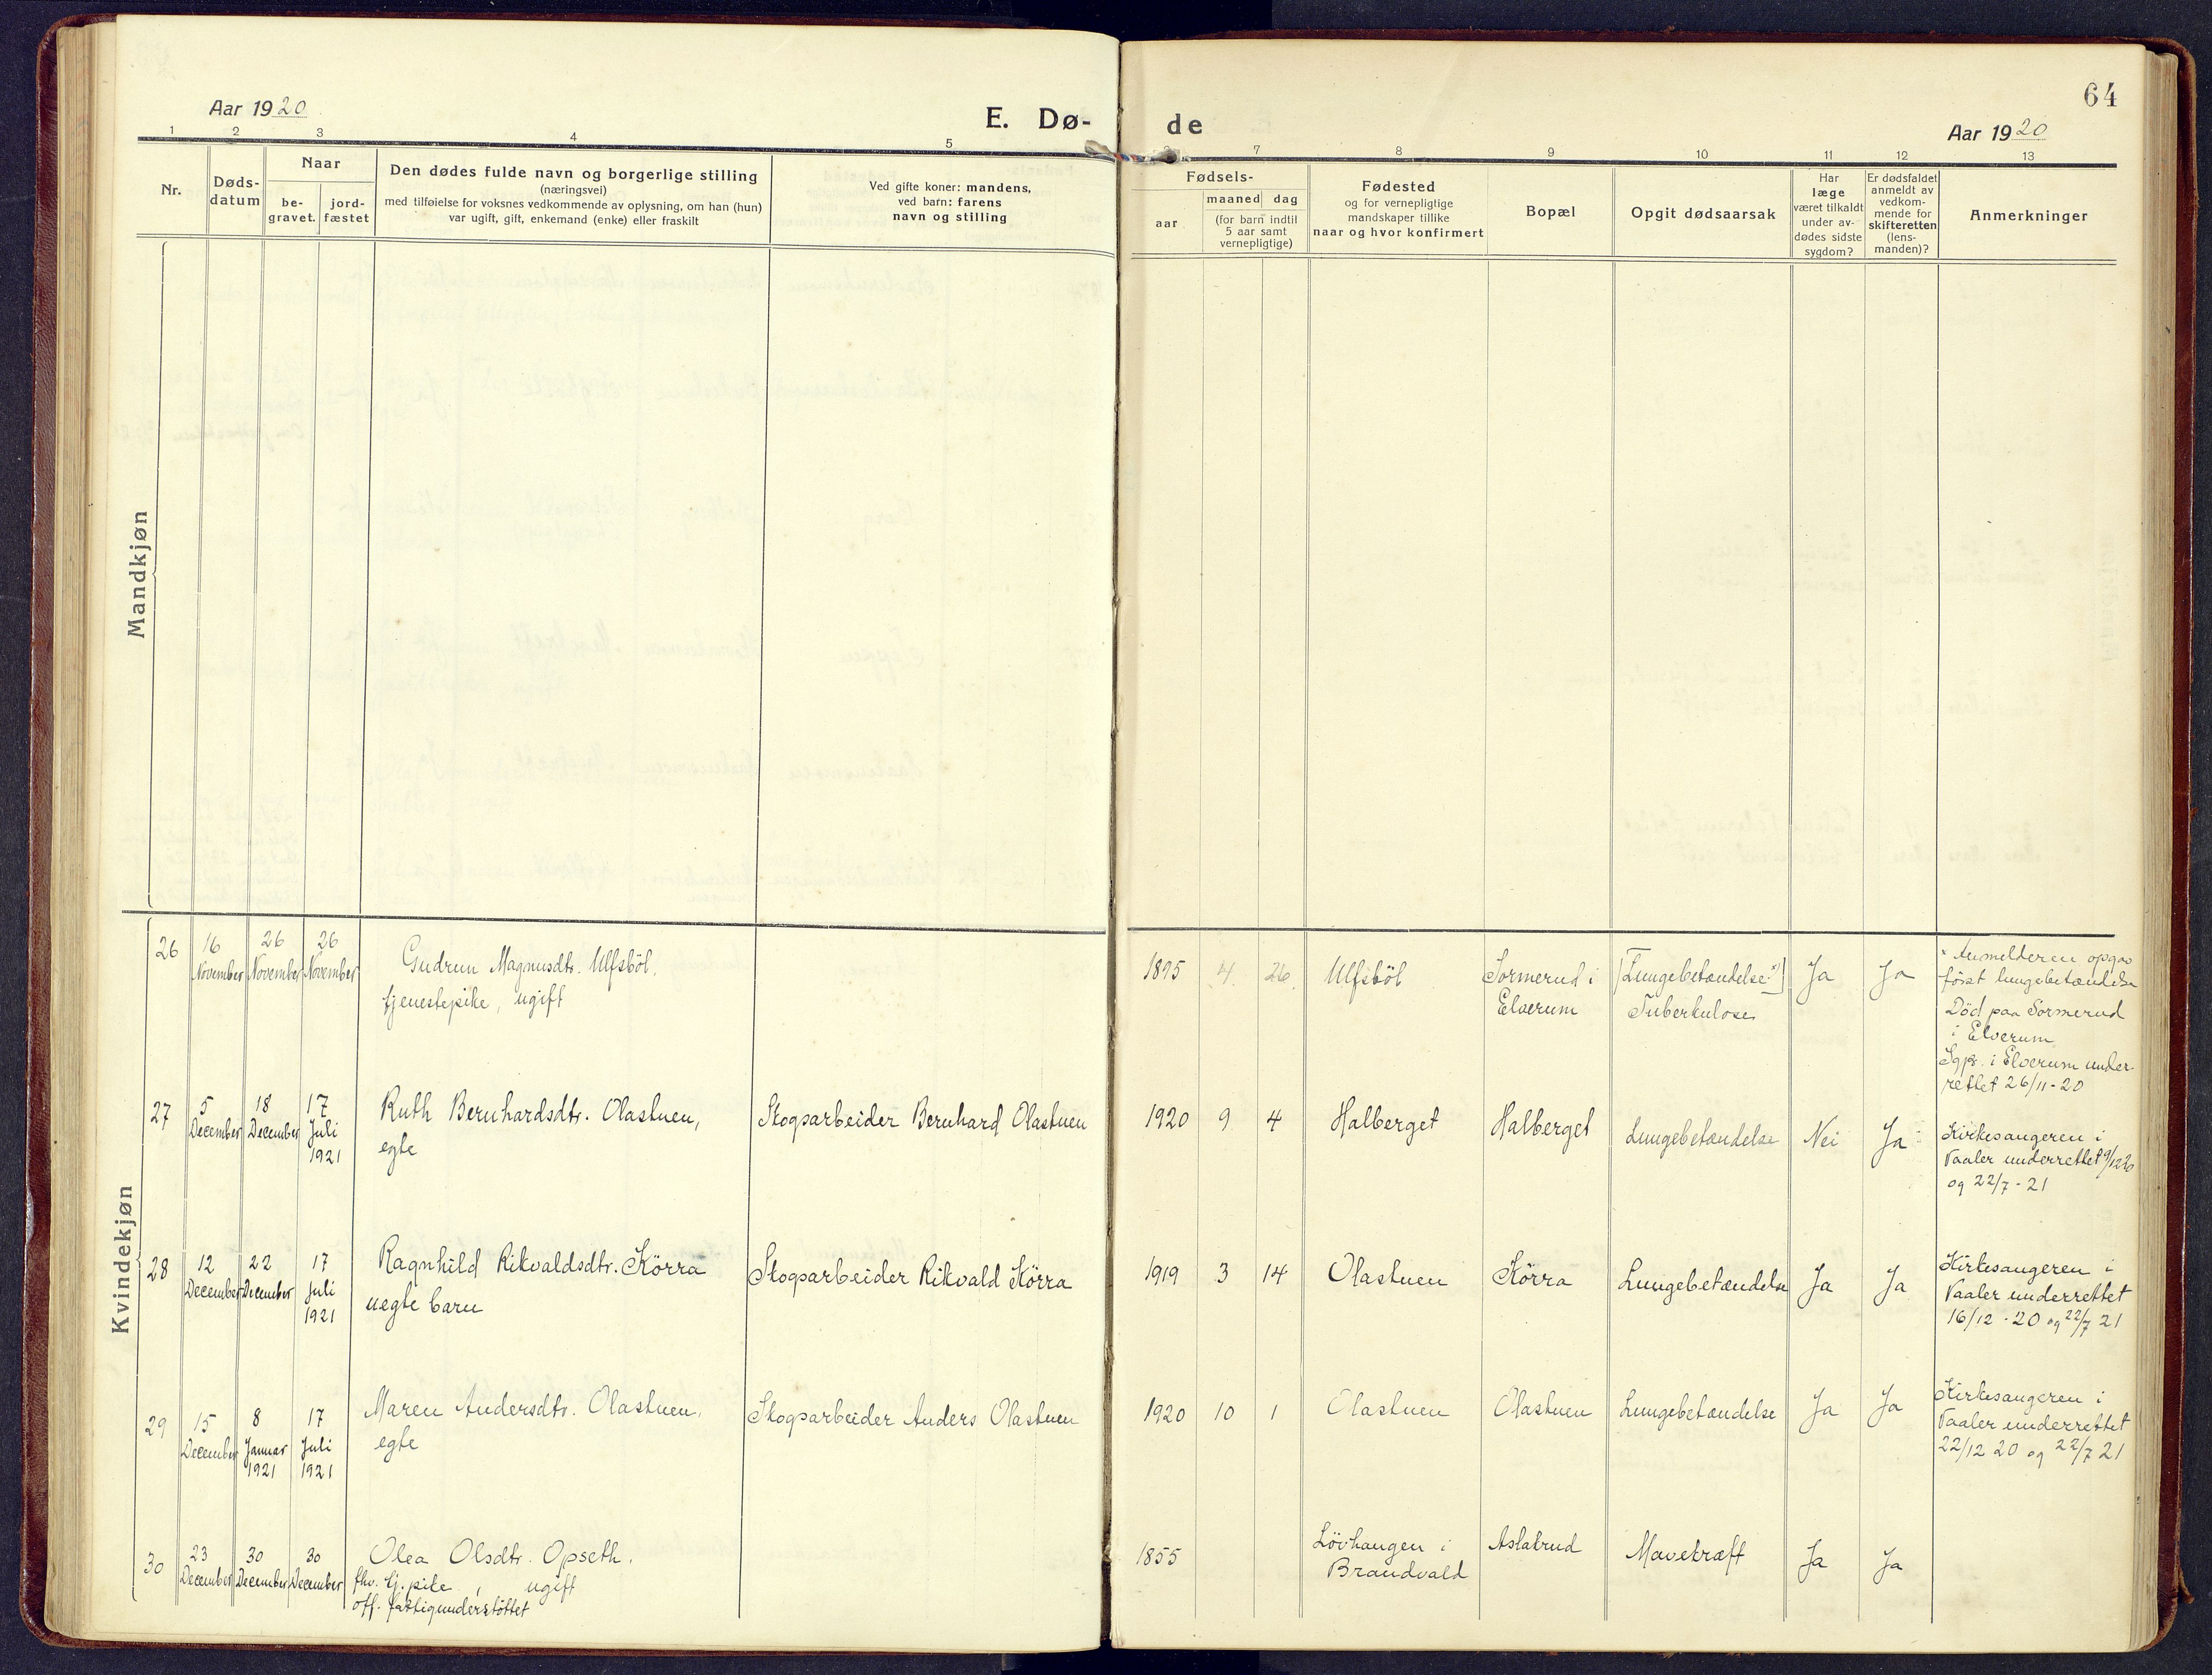 64
Aar 1920
E. Dø-
de
Aar 1920
1 2 3 4 5
7 8 9 10 11 12 13
Nr.
Døds-
datum
Naar
be-
gravet.
jord-
fæstet
Den dødes fulde navn og borgerlige stilling
(næringsvei)
med tilføielse for voksnes vedkommende av oplysning, om han (hun)
var ugift, gift, enkemand (enke) eller fraskilt
Ved gifte koner: mandens,
ved barn: farens
navn og stilling
Fødsels-
aar
maaned dag
(for barn indtil
5 aar samt
vernepligtige)
Fødested
og for vernepligtige
mandskaper tillike
naar og hvor konfirmert
Bopæl
Opgit dødsaarsak
Har
læge
været tilkaldt
under av-
dødes sidste
sygdom?
Er dødsfaldet
anmeldt av
vedkom-
mende for
skifteretten
(lens-
manden)?
Anmerkninger
Mandkjøn
Kvindekjøn
26
16
November
26
November
26
November
Gudrun Magnusdtr. Ulfsböl,
tjenestepike, ugift
1895 4. 26.
Ulfsböl
Sormerud i
Elverum
[Lungebetændelse x)]
Tuberkulose
Ja
Ja
x Anmelderen opgav
först lungebetændelse
Död paa Sormerud
i Elverum
Sgpr. i Elverum under-
rettet 26/11-20
27
5
December
18
December
17
Juli
1921
Ruth Bernhardsdtr. Olastuen,
egte
Skogsarbeider Bernhard Olastuen
1920 9 4
Halberget
Halberget
Lungebetændelse
Nei
Ja
Kirkesangeren i
Vaaler underrettet 9/12 20
og 22/7-21
28
12
December
22
December
17
Juli
1921
Ragnhild Rikvaldsdtr. Körra
uegte barn
Skogsarbeider Rikvald Körra
1919 3 14
Olastuen
Körra
Lungebetændelse
Ja
Ja
Kirkesangeren i
Vaaler underrettet
16/12-20 og 22/7 21
29
15
December
8
Januar
1921
17
Juli
1921
Maren Andersdtr. Olastuen,
egte
Skogsarbeider Anders Olastuen
1920 10 1
Olastuen
Olastuen
Lungebetændelse
Ja
Ja
Kirkesangeren i
Vaaler underrettet
22/12 20 og 22/7 21
30
23
December
30
December
30
December
Olea Olsdtr. Opseth,
fhv. tj.pike, ugift
off. fattigunderstöttet
1855
Lövhaugen i
Brandvald
Aslakrud
Mavekræft
Ja
Ja